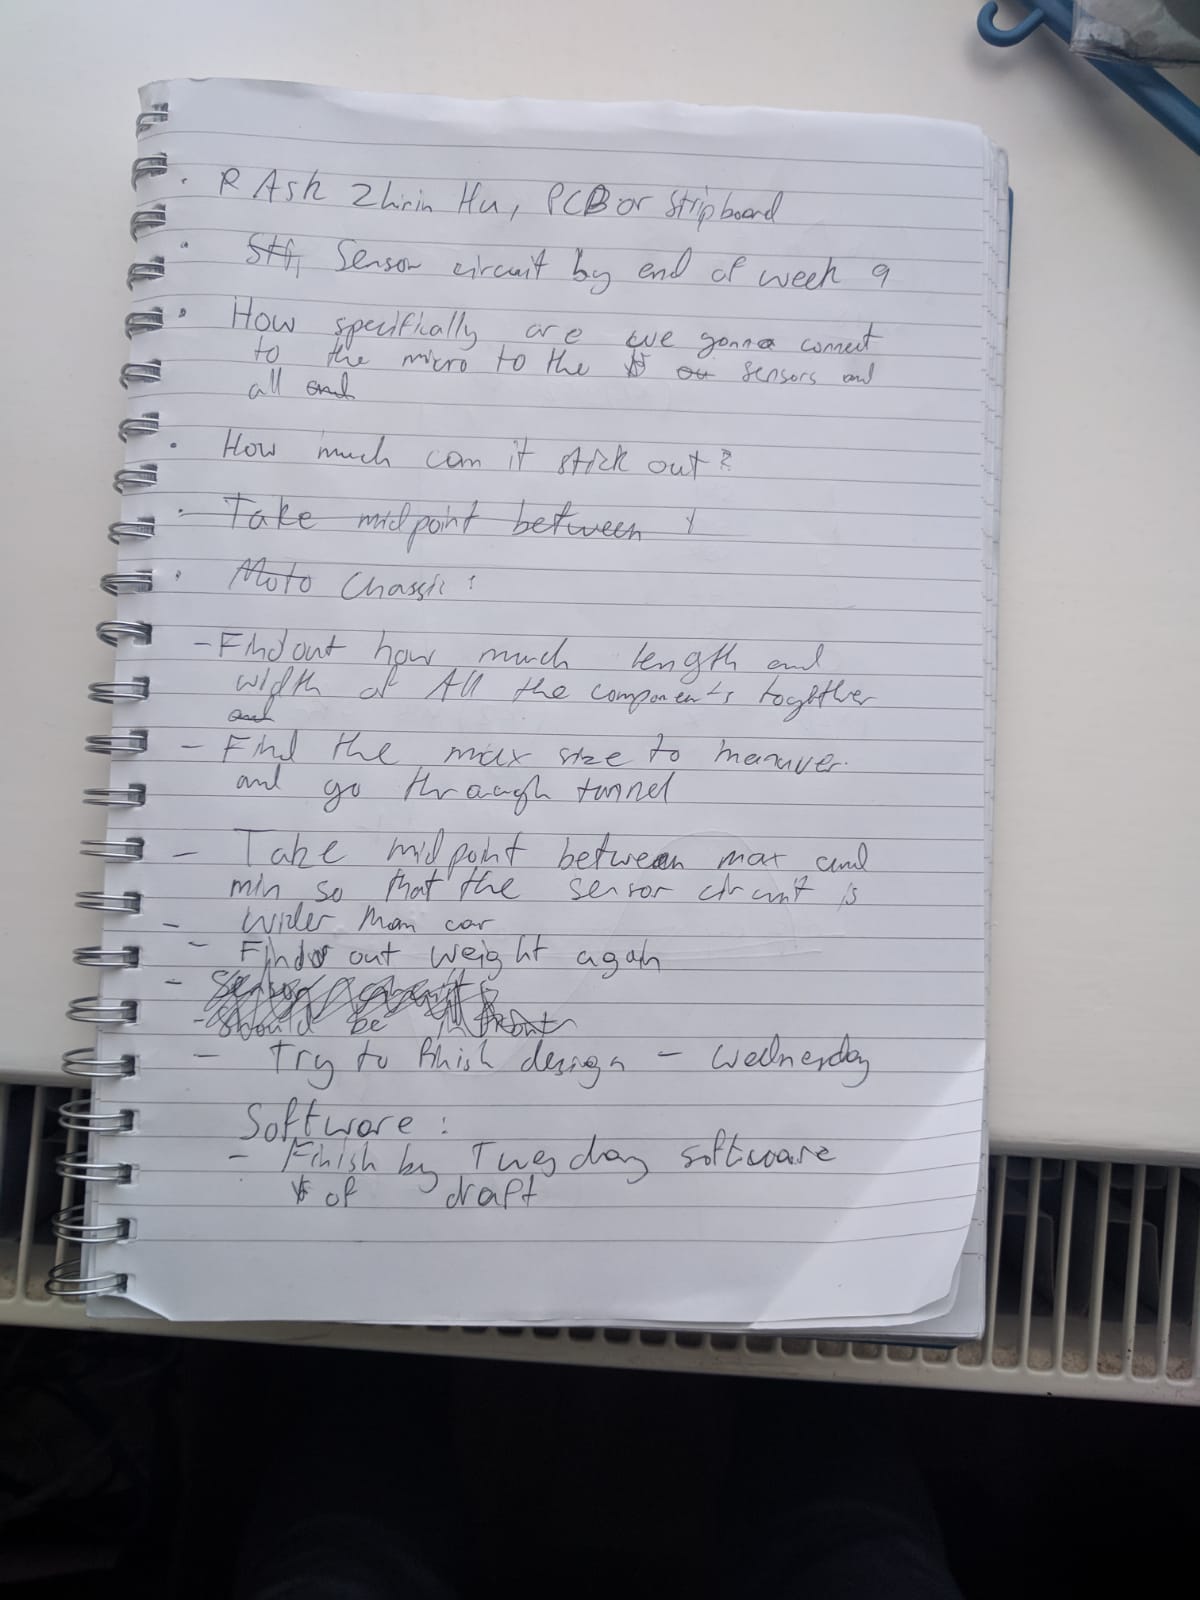 · R Ask Zhirin Hu, PCB or Stripboard
· Sensor circuit by end of week 9
· How specifically are we gonna connect
to the micro to the sensors and
all
· How much can it stick out?
· Take midpoint between
· Moto Chassis:
- Find out how much length and
width of All the components together
and
- Find the max size to manuver
and go through tunnel
- Take midpoint between max and
min so that the sensor circuit is
- wider than car
- Find out weight again
- Sensor circuit
- should be in front
- Try to finish design - Wednesday
Software:
- Finish by Tuesday software
of draft